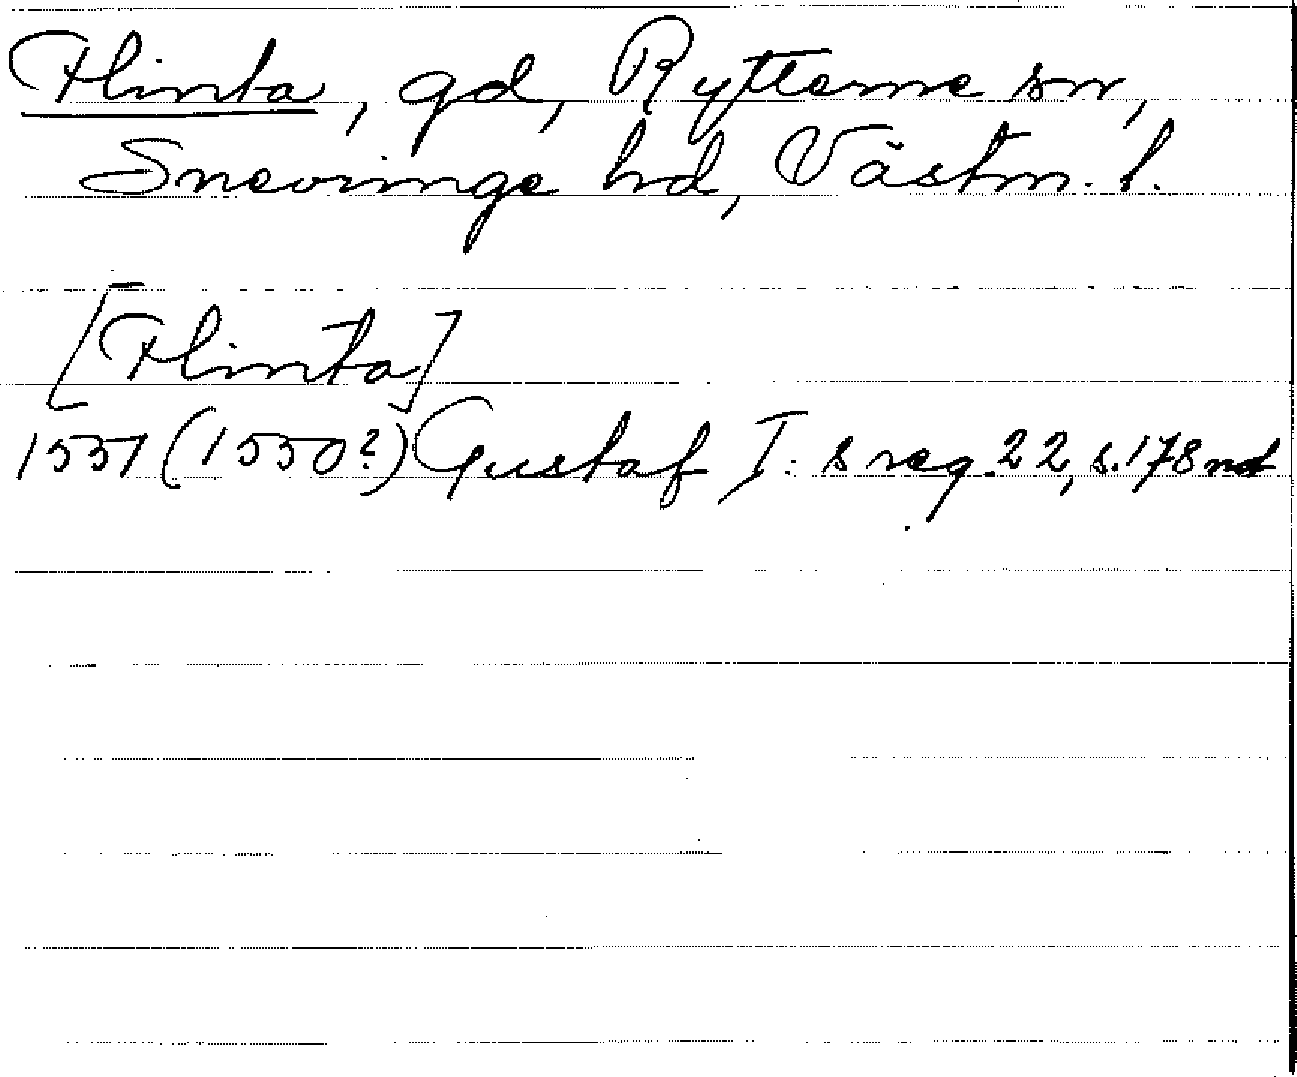 Flinta, gd, Rytterne sn,
Snevringe hd, Västm. l.
[Flinta]
1551 (1550?) Gustaf I:s reg. 22, s. 178 nd